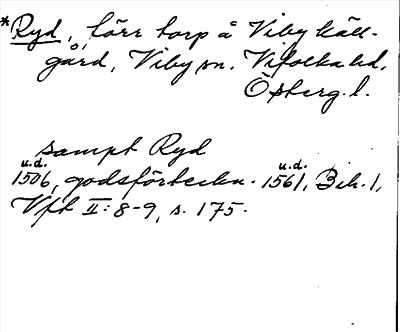 *Ryd, förr torp å Viby Käll-
gård, Viby sn. Vifolka hd,
Östberg. l.
sampt Ryd
u.d. u.d.
1506, godsförteckn. 1561, Bih. 1,
Vft II: 8-9, s. 175.